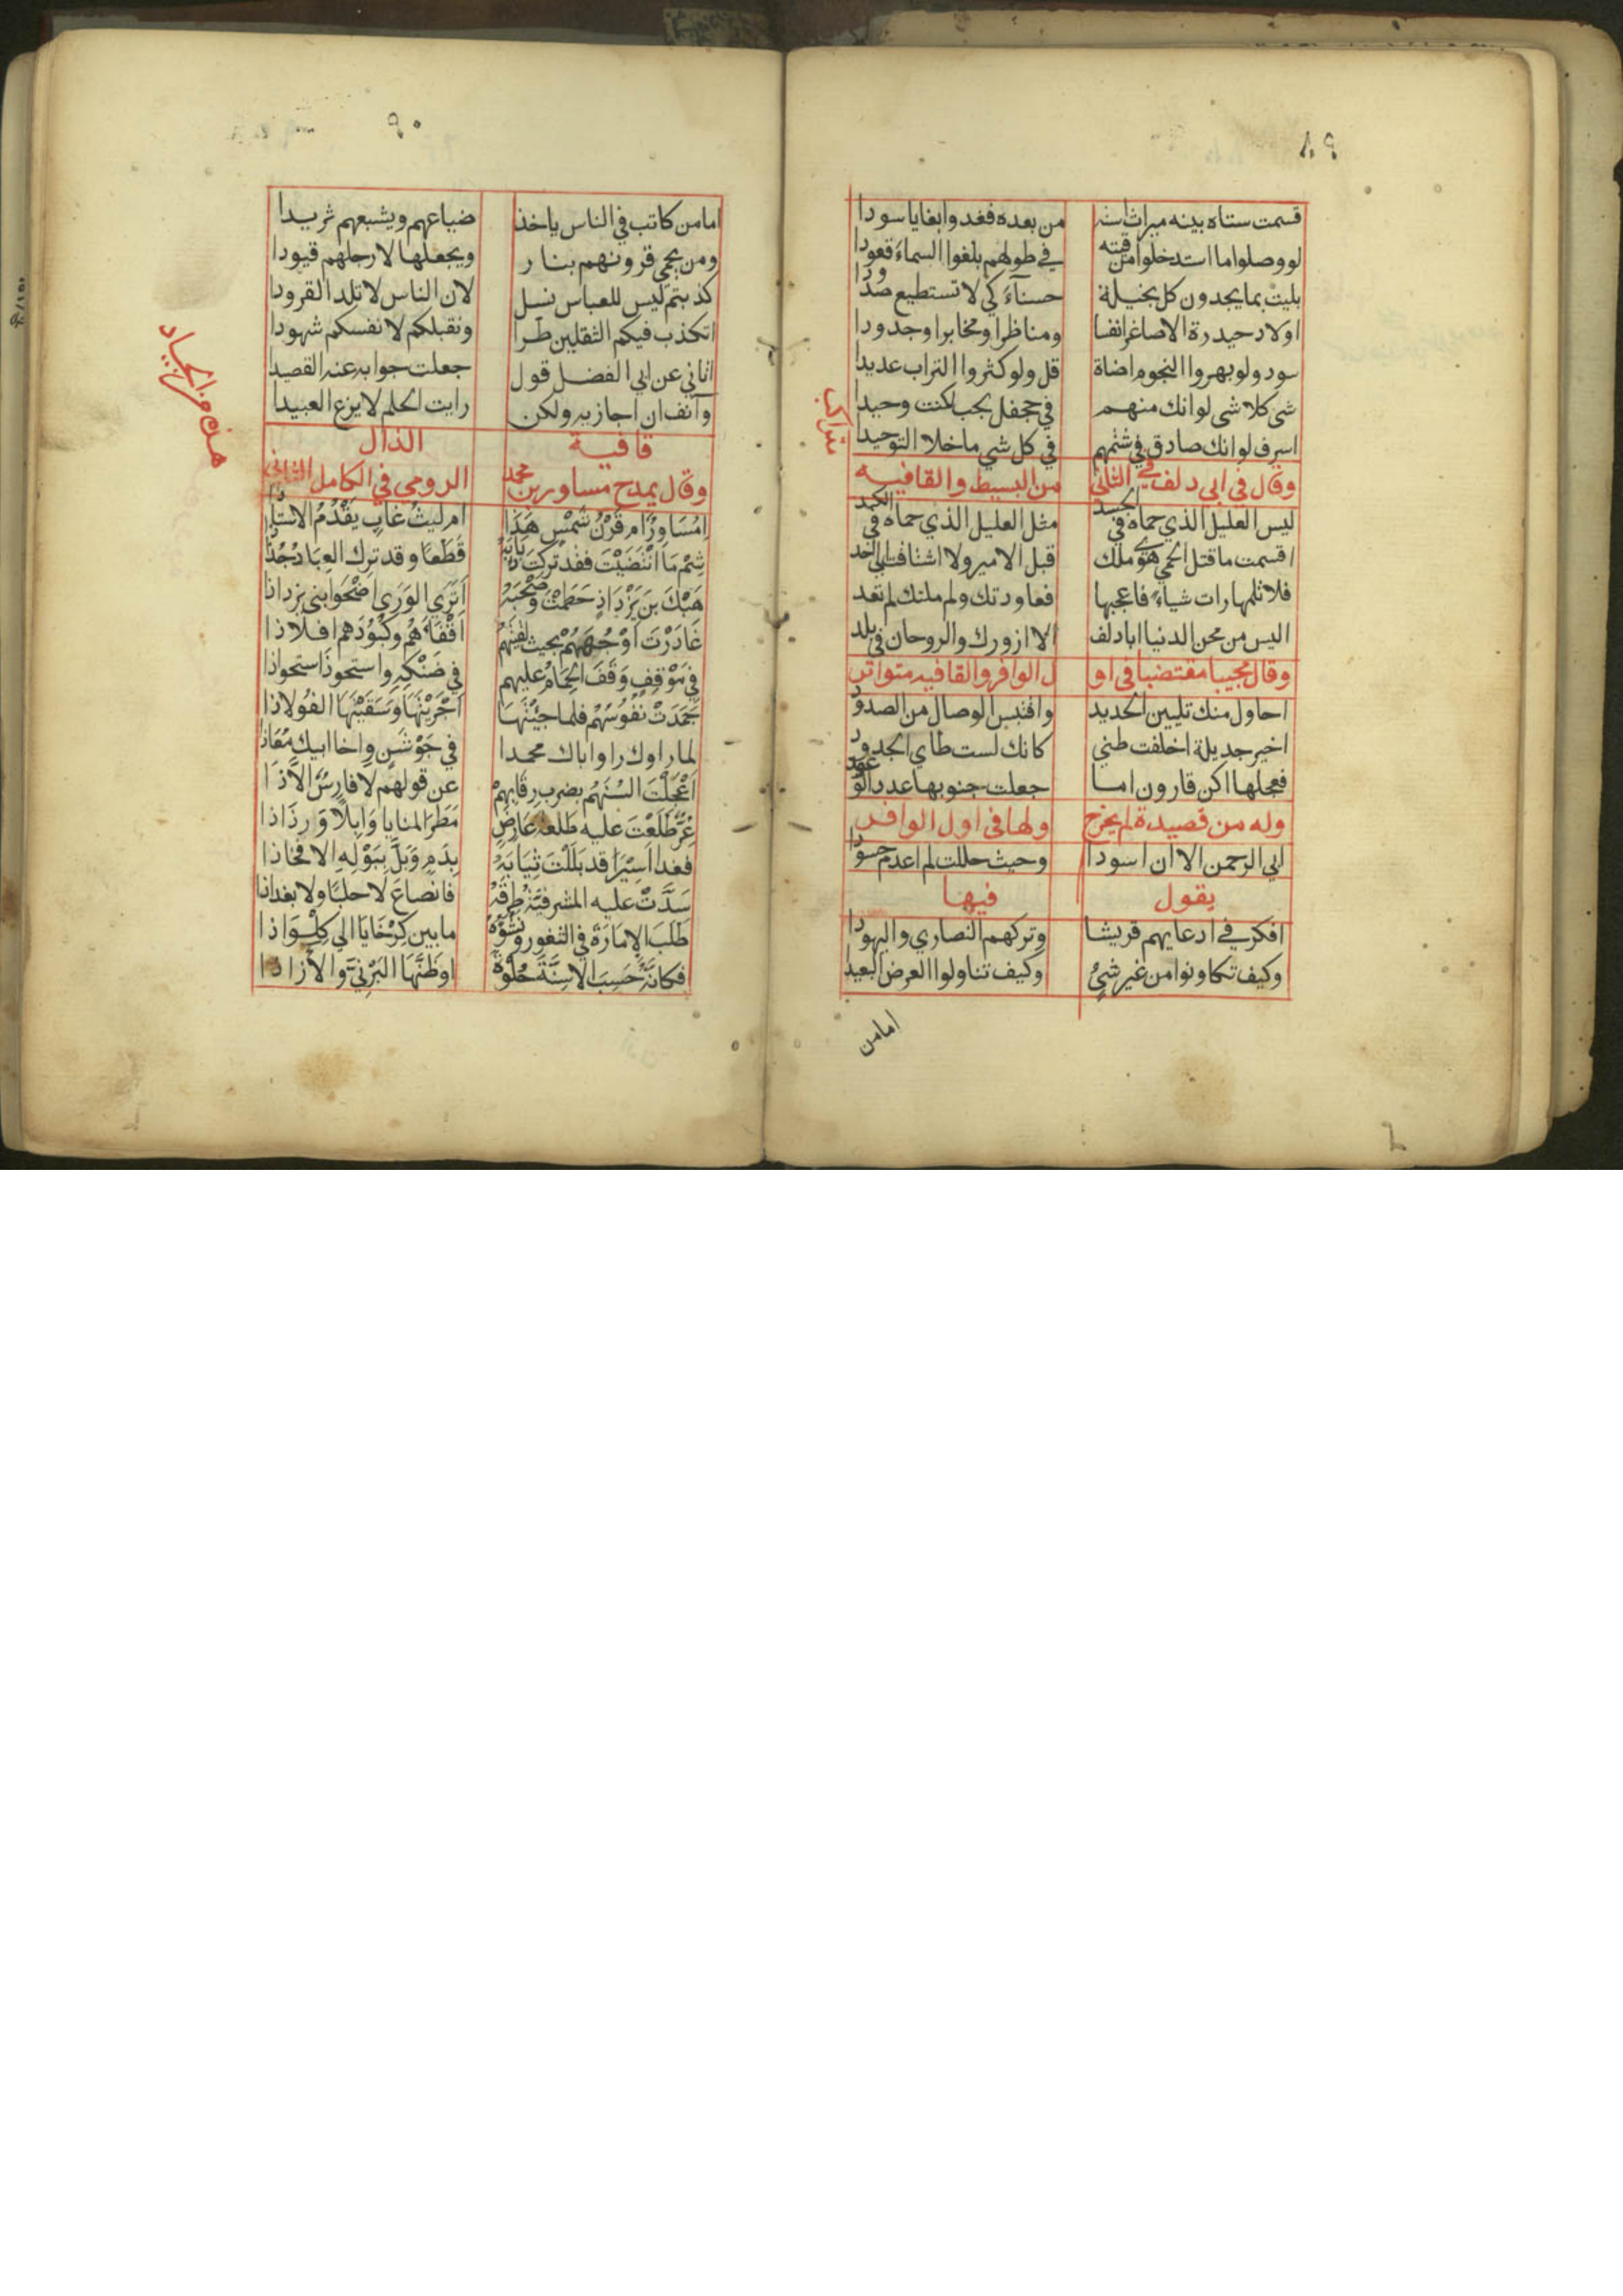 قسمت ستاه بينه ميراث استه من بعده فغدوا بغايا سودا
لو وصلوا ما استدخلوا من فيته في طولهم بلغوا السماء قعودا
بليت بما يجدون كل بخيلة حسناء كي لا تستطيع صدودا
اولاد حيدرة الاصاغر انفسا ومناظرا ومخابرا وجدودا
سود ولو بهروا النجوم اضاة قل ولو كثروا التراب عديدا
شي كلا شي لو انك منهم في جحفل لجب لكنت وحيدا
اسرف لو انك صادق في شتمهم في كل شي ما خلا التوحيدا
وقال في ابي دلف في الثاني من البسيط والقافيه
متراكب
ليس العليل الذي حماه في الجسد مثل العليل الذي حماه في الكبد
اقسمت ما قتل الحمي سوي ملك قبل الامير ولا اشتاقت الي احد
فلا تلمها رات شياء فاعجبها فعاودتك ولو ملتك لم تعد
اليس من محن الدنيا ابا دلف الا ازورك والروحان في بلد
وقال مجيبا مقتضبا في اول الوافر والقافيه متواتر
احاول منك تليين الحديد واقتبس الوصال من الصدود
اخير جديلة اخلفت ظني كانك لست طاي الجدود
فعجلها اكن قارون اما جعلت جنوبها عدد الوعود
وله من قصيدة لم يخرج ولها في اول الوافر
ابي الرحمن الا ان اسودا وحيث حللت لم اعدم حسودا
يقول فيها
افكر في ادعايهم قريشا وتركهم النصاري واليهودا
وكيف تكاونوا من غير شيء وكيف تناولوا العرض البعيدا
امامن
٥٠
امامن كاتب في الناس ياخذ ضباعهم ويشبعهم ثريدا
ومن يحمي قرونهم بنار ويجعلها لارجلهم قيودا
كذبتم ليس للعباس نسل لان الناس لا تلد القرودا
اتكذب فيكم الثقلين طرا ونقبلكم لانفسكم شهودا
اتاني عن ابي الفضل قول جعلت جوابه عنه القصيدا
وآنف ان اجازيه ولكن رايت الحلم لا يزع العبيدا
قافية الذال
وقال يمدح مساور بن محمد الرومي في الكامل الثاني
هذه من الجياد
اَمُسَاوِرٌ ام قَرْنُ شَمْسٍ هَذَا ام ليثُ غابٍ يَقْدُمُ الاستاذا
شِمْ مَا انْتَضَيْتَ فقد تركتَ ذبابه قِطَعًا وقد ترك العِبَادَ جُذَاذا
هَبْكَ بنَ يَزْدَاذٍ حَطَمْتَ وَصَحْبَهُ اَتَرَي الوَرَي اَضْحَوا بني يزداذا
غَادَرْتَ اَوْجُهَهُمْ بحيث لقيتهم اَقْفَاءَهُم وكُبُوُدَهم افلاذا
في مَوْقِفٍ وَقَفَ الحِمَامُ عليهم في ضَنْكِهِ واستحوذَ استحواذا
جَمَدَتْ نُفُوسُهُم فلما جيْتَهَا اَجْرَيْتَهَا وَسَقَيْتَهَا الفُولاذا
لما راوك راوا اباك محمدا في جَوْشَنٍ واخا ابيك مُعَاذا
اَعْجَلْتَ السُنَهُم بضرب رِقَابِهِمْ عن قولهم لا فارسٌ الا ذا
غِرٌّ طَلَعْتَ عليه طَلْعَةَ عَارِضٍ مَطَرَ المنايا وَابِلًا وَرَذَاذا
فغدا اَسِيْرًا قد بَلَلْتَ ثِيَابَهُ بِدَمٍ وَبَلَّ بِبَوْلِهِ الافخاذا
سَدَّتْ عليه المشرفيّةُ طُرْقَهُ فانصاعَ لا حلبًا ولا بغداذا
طَلَبَ الاِمَارَةَ في الثغور ونشُوُهُ مابين كِرْخَايَا الي كِلْوَاذا
فكانَّهُ حَسِبَ الاسِنَّةَ حُلْوَةً اوظَنَّهَا البَرْنِيَّ والآزاذا